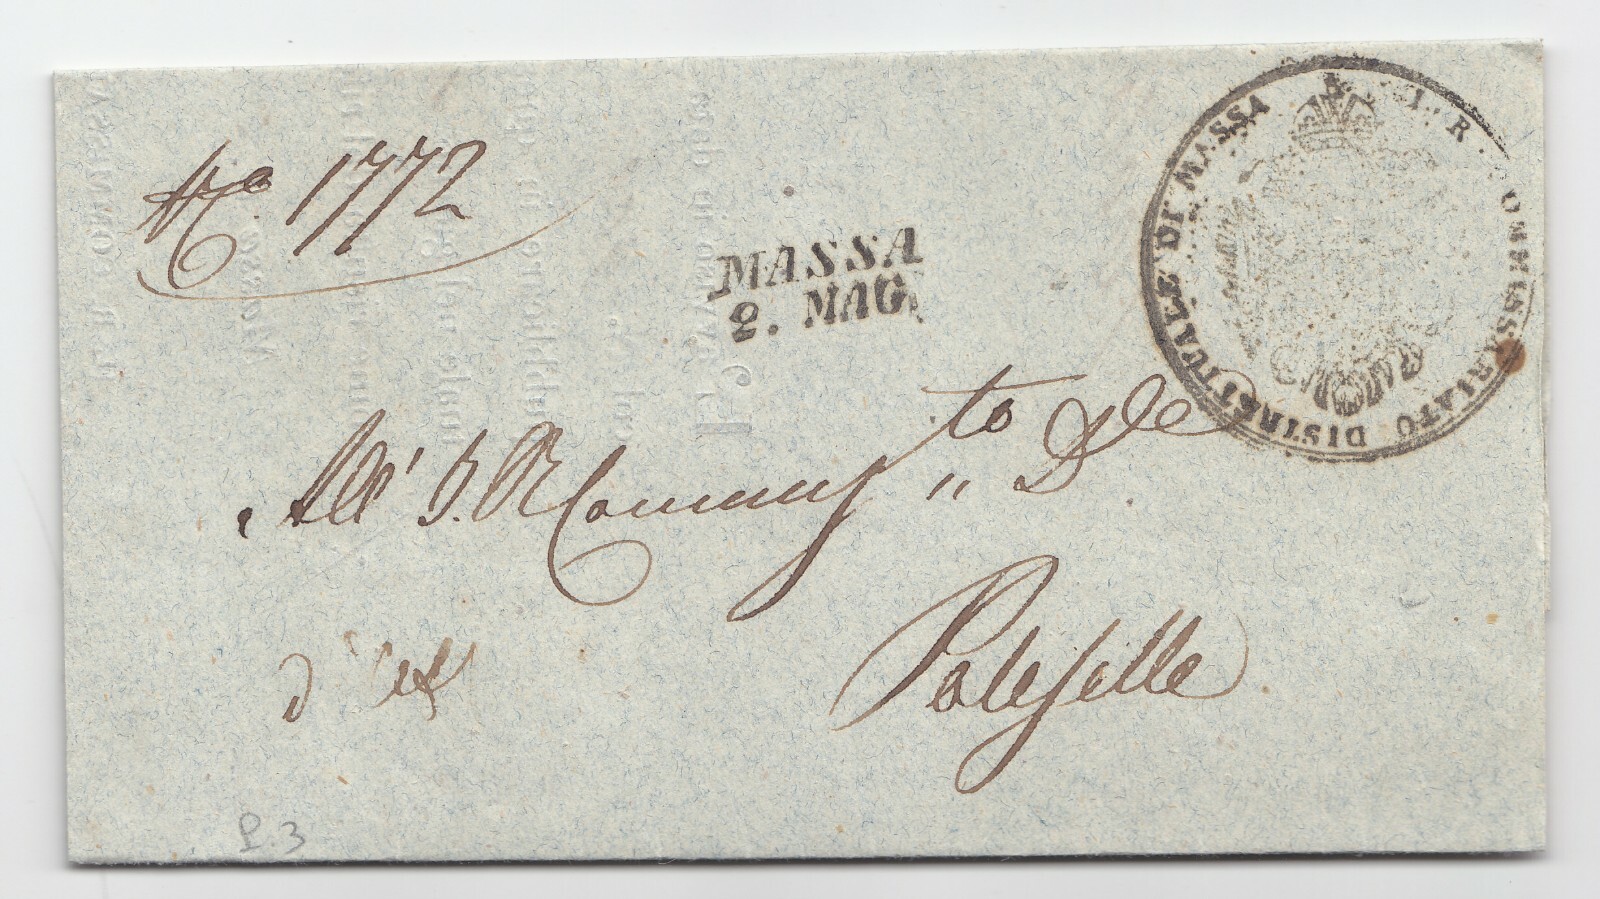 N.o 1772
MASSA
2. MAG.
I. R. COMMISSARIATO DISTRETTUALE DI MASSA
All' I. R. Commiss.to D.le
Polesella
P. 3